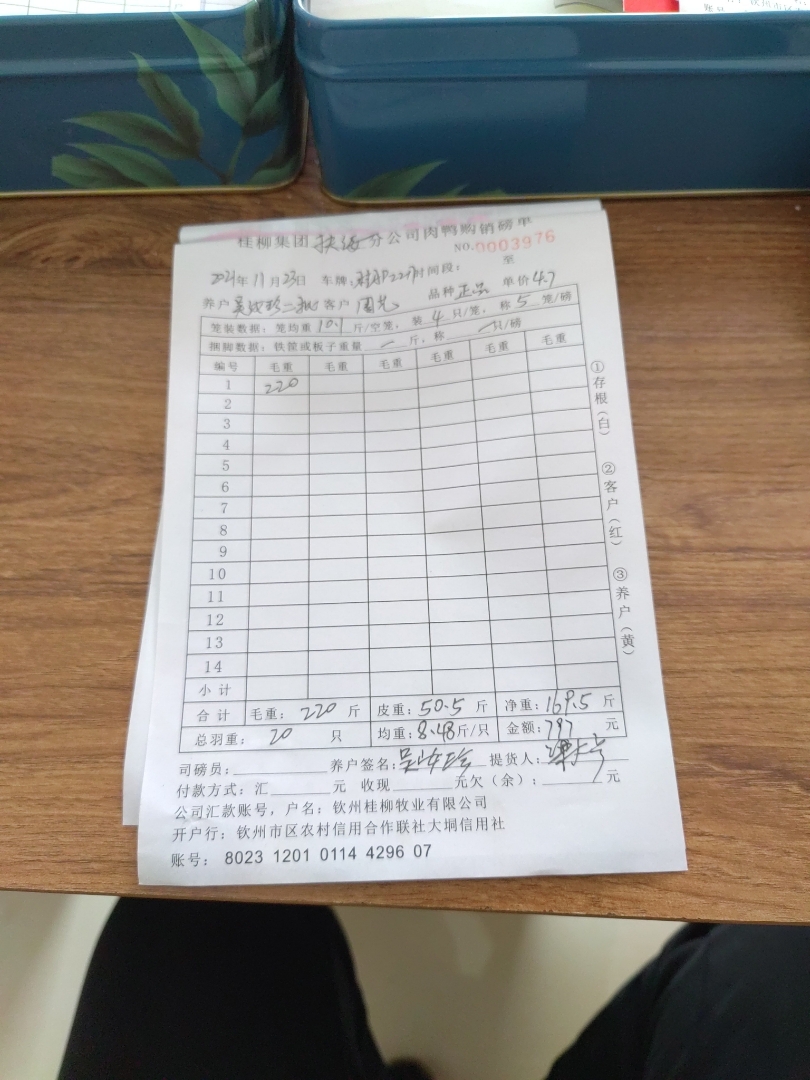 桂柳集团扶绥分公司肉鸭购销磅单
NO.0003976
2021年11月23日 车牌: 时间段: 至
养户 二批 客户 周 品种 正品 单价 4.7
笼装数据: 笼均重 10.1 斤/空笼, 装 4 只/笼, 称 5 笼/磅
捆脚数据: 铁筐或板子重量 — 斤, 称 — 只/磅
编号 毛重 毛重 毛重 毛重 毛重 毛重
1 220
2
3
4
5
6
7
8
9
10
11
12
13
14
小计
合计 毛重: 220 斤 皮重: 50.5 斤 净重: 169.5 斤
总羽重: 20 只 均重: 8.48 斤/只 金额: 797 元
司磅员: 养户签名: 吴 珍 提货人:
付款方式: 汇 元 收现 元欠(余): 元
公司汇款账号, 户名: 钦州桂柳牧业有限公司
开户行: 钦州市区农村信用合作联社大垌信用社
账号: 8023 1201 0114 4296 07
①存根(白)
②客户(红)
③养户(黄)